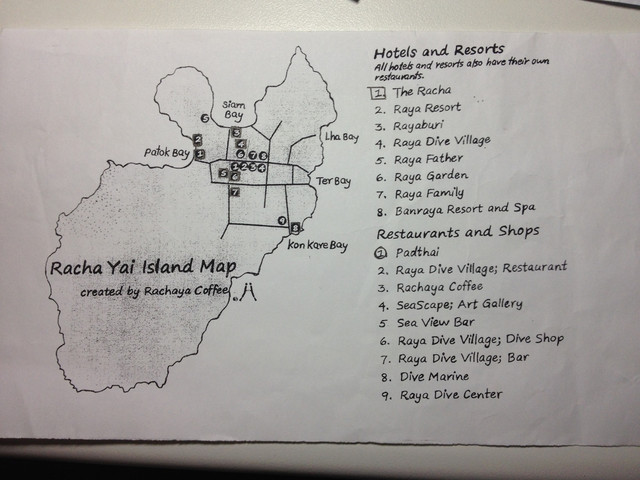 Hotels and Resorts
All hotels and resorts also have their own
restaurants.
1. The Racha
2. Raya Resort
3. Rayaburi
4. Raya Dive Village
5. Raya Father
6. Raya Garden
7. Raya Family
8. Banraya Resort and Spa
Restaurants and Shops
1 Padthai
2. Raya Dive Village; Restaurant
3. Rachaya Coffee
4. SeaScape; Art Gallery
5 Sea View Bar
6. Raya Dive Village; Dive Shop
7. Raya Dive Village; Bar
8. Dive Marine
9. Raya Dive Center
Siam
Bay
Lha Bay
Patok Bay
Ter Bay
Kon Kare Bay
Racha Yai Island Map
created by Rachaya Coffee